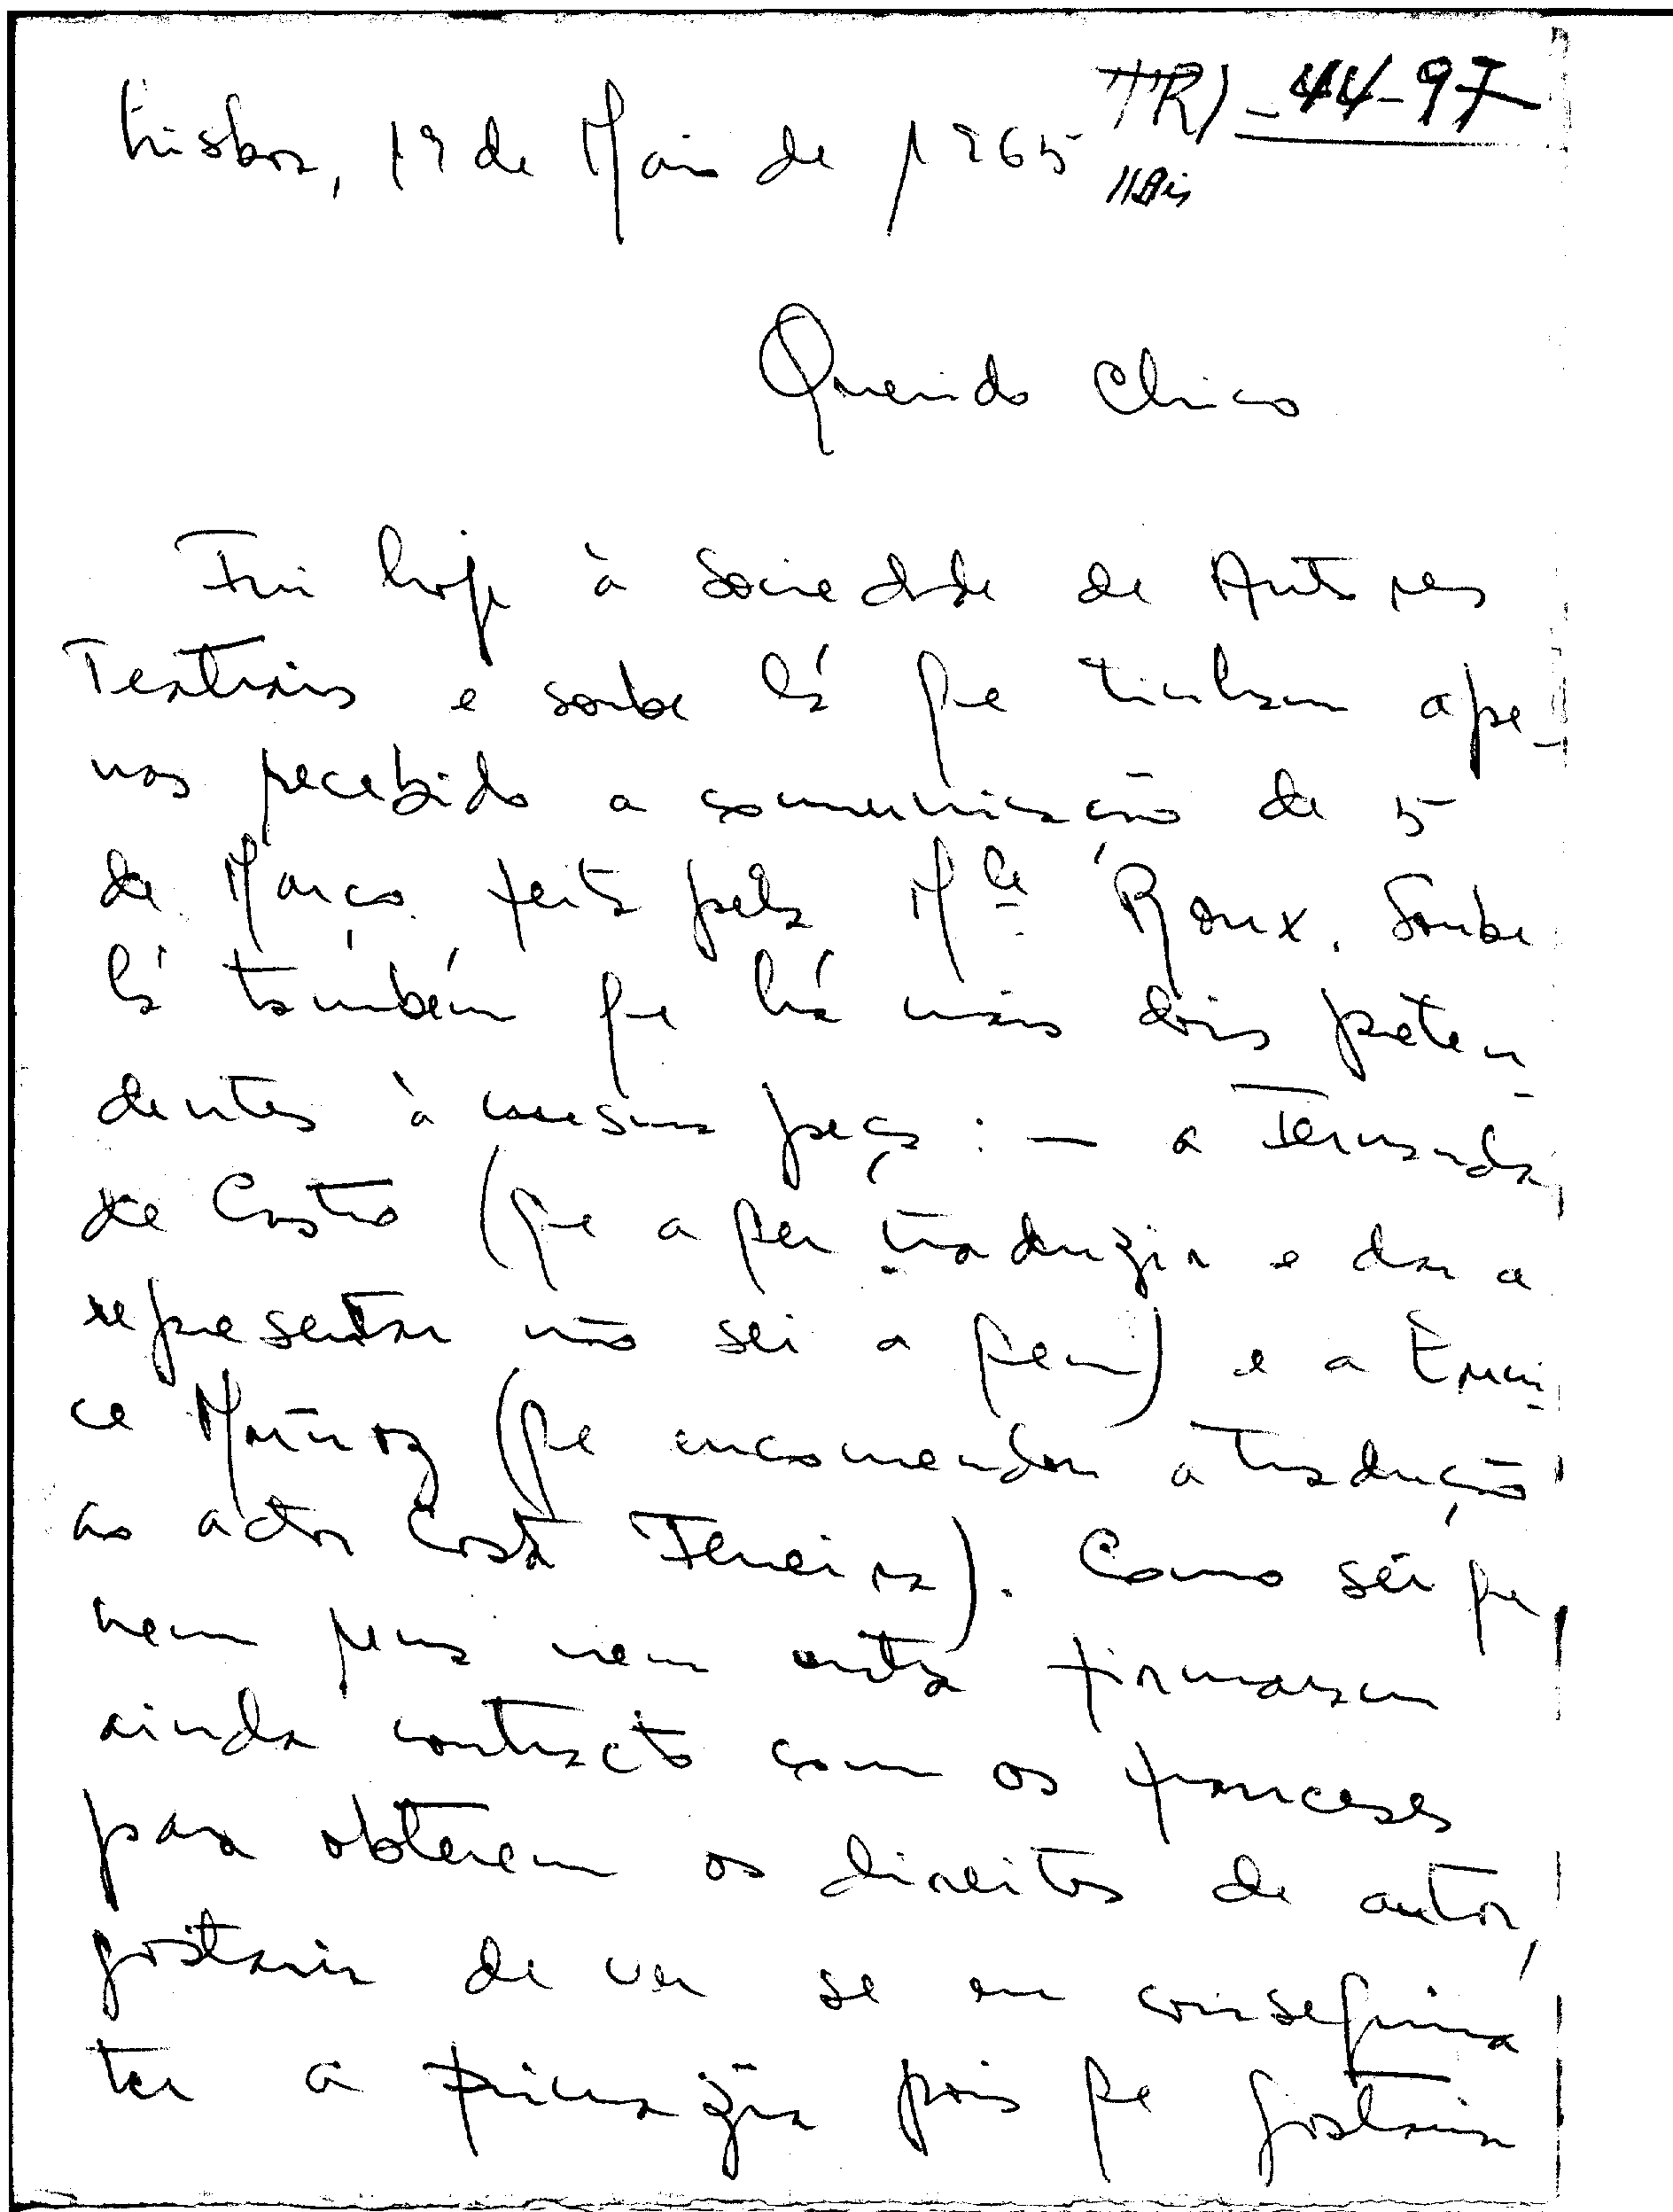 Lisboa, 19 de Maio de 1965
TRI-44-97
Querido Chico
Fui hoje à Sociedade de Autores
Teatrais e soube lá que tinham ape-
nas recebido a comunicação de 5
de Março feita pela Mle Roux. Soube
lá também que há mais dois preten-
dentes à mesma peça: — a Fernanda
de Castro (que a quer traduzir e dar a
representar não sei a quem) e a Euni-
ce Muñoz (que encomendou a tradução
ao actor Costa Ferreira). Como sei que
nem uma nem outra firmaram
ainda contracto com os franceses
para obterem os direitos de autor,
gostaria de ver se eu conseguiria
ter a primazia pois que gostaria